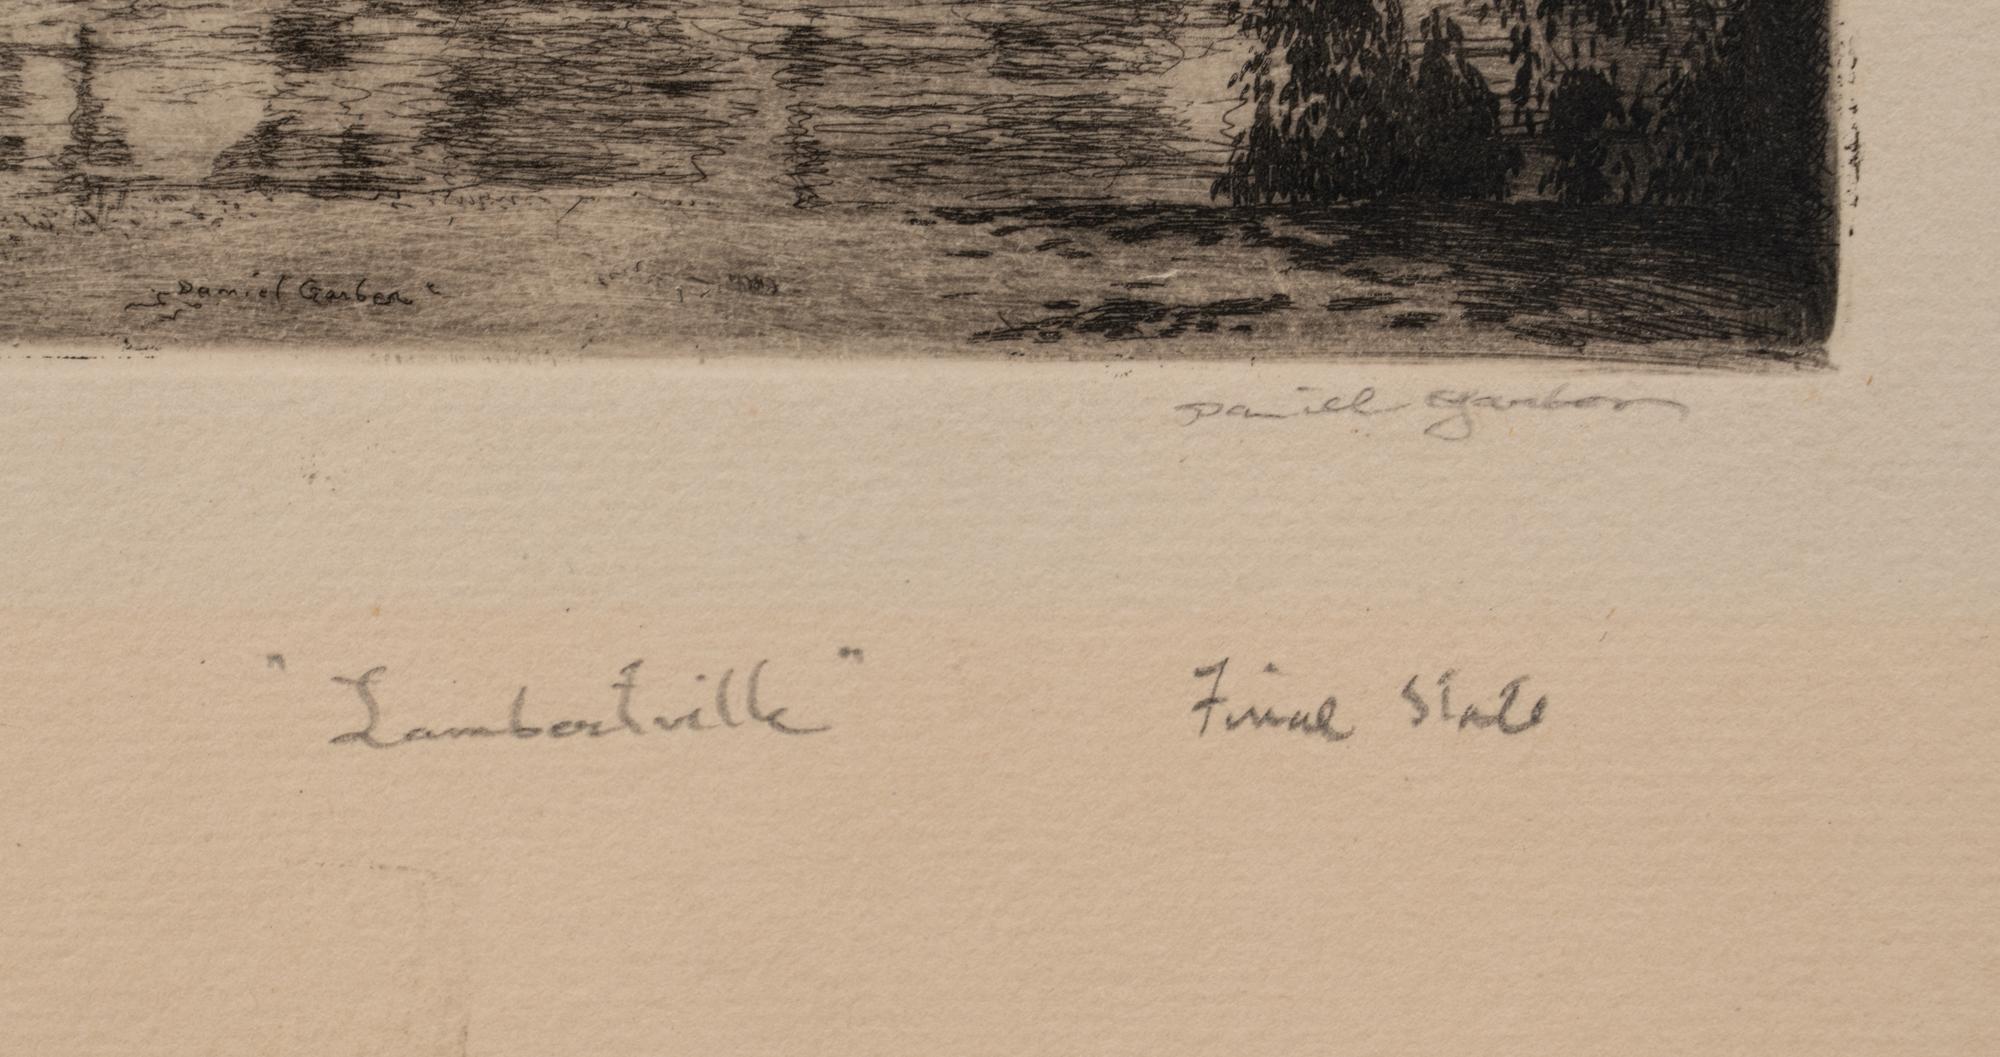 Daniel Garber
Daniel Garber
"Lambertville" Final State